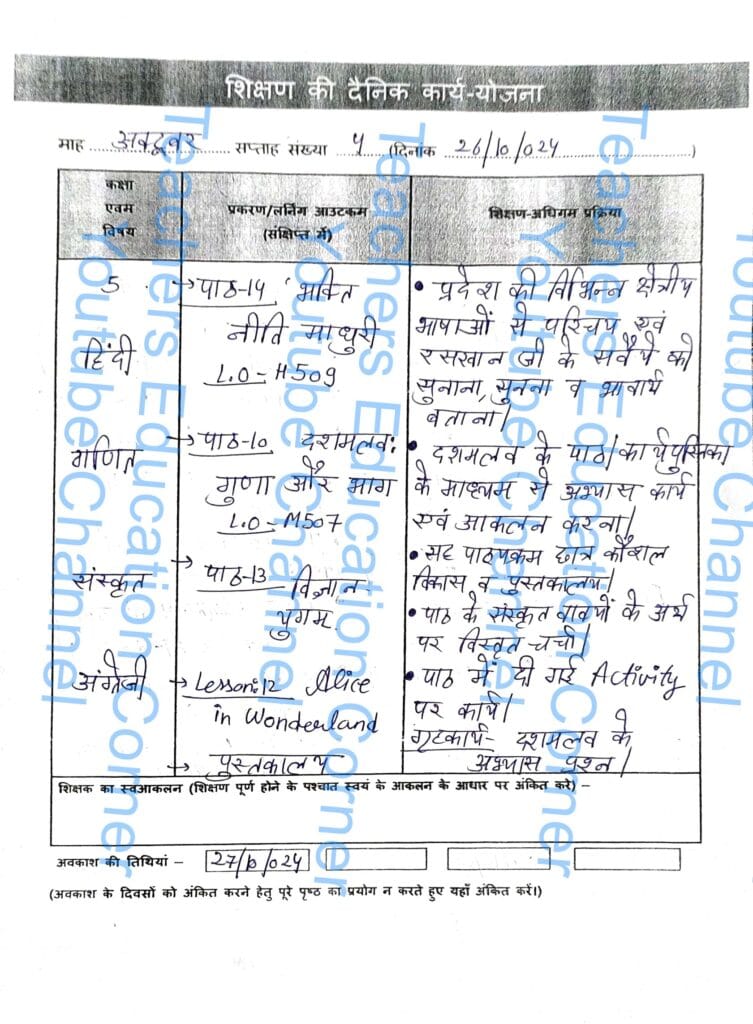 शिक्षण की दैनिक कार्य-योजना
माह ... अक्टूबर ... सप्ताह संख्या ५ (दिनांक 26/10/024 ...)
कक्षा
एवम
विषय
प्रकरण/लर्निंग आउटकम
(संक्षिप्त में)
शिक्षण-अधिगम प्रक्रिया
5
हिंदी
→ पाठ-14 'भक्ति
नीति माधुरी
L.O-H509
• प्रदेश की विभिन्न क्षेत्रीय
भाषाओं से परिचय एवं
रसखान जी के सवैये को
सुनाना, सुनना व भावार्थ
बताना।
गणित
→ पाठ-10 दशमलव:
गुणा और भाग
L.O-M507
• दशमलव के पाठ/कार्यपुस्तिका
के माध्यम से अभ्यास कार्य
एवं आकलन करना।
• सह पाठ्यक्रम छात्र कौशल
विकास व पुस्तकालय।
संस्कृत
→ पाठ-13 विज्ञान-
युगम्
• पाठ के संस्कृत वाक्यों के अर्थ
पर विस्तृत चर्चा।
अंग्रेजी
→ Lesson:12 Alice
in Wonderland
→ पुस्तकालय
• पाठ में दी गई Activity
पर कार्य।
गृहकार्य- दशमलव के
अभ्यास प्रश्न।
शिक्षक का स्वआकलन (शिक्षण पूर्ण होने के पश्चात स्वयं के आकलन के आधार पर अंकित करे) –
अवकाश की तिथियां – 27/10/024
(अवकाश के दिवसों को अंकित करने हेतु पूरे पृष्ठ का प्रयोग न करते हुए यहाँ अंकित करें।)
Teachers Education Corner
Youtube Channel
Teachers Education Corner
Youtube Channel
Teachers Education Corner
Youtube Channel